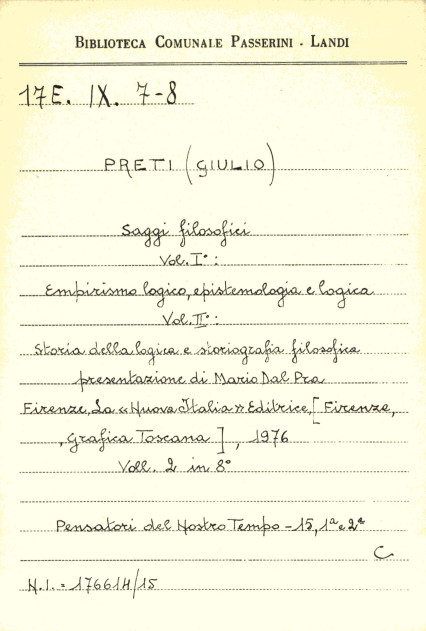 BIBLIOTECA COMUNALE PASSERINI - LANDI
17E. IX. 7-8
PRETI (GIULIO)
Saggi filosofici
Vol. I°:
Empirismo logico, epistemologia e logica
Vol. II°:
Storia della logica e storiografia filosofica
presentazione di Mario Dal Pra
Firenze, La «Nuova Italia» Editrice, [Firenze,
, Grafica Toscana], 1976
Voll. 2 in 8°
Pensatori del Nostro Tempo - 15, 1ª e 2ª
C
N.I. = 176614/15